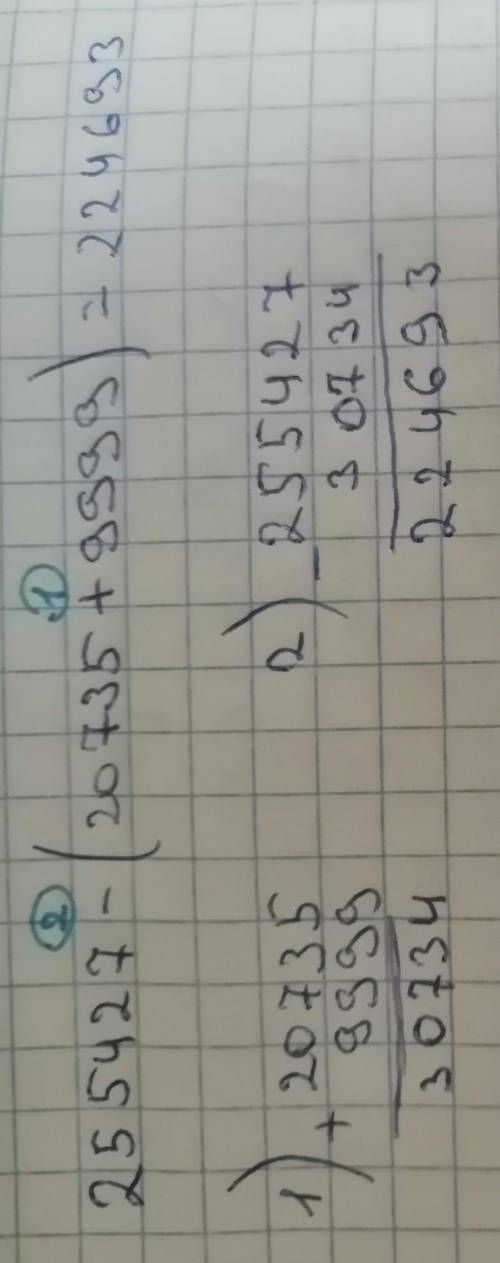 2 1
255427 - (20735 + 9999) = 224693
1) + 20735
9999
30734
2) - 255427
30734
224693